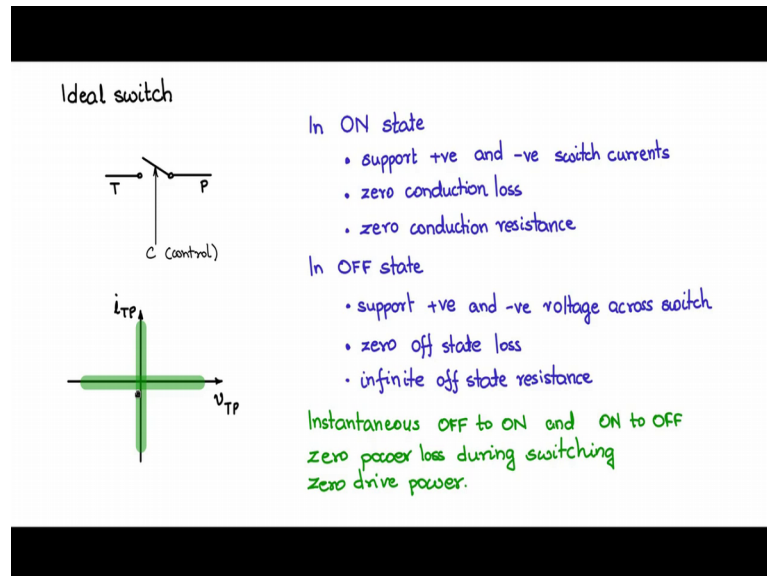 Ideal switch
T
P
C (control)
iTP
vTP
In ON state
• support +ve and -ve switch currents
• zero conduction loss
• zero conduction resistance
In OFF state
• support +ve and -ve voltage across switch
• zero off state loss
• infinite off state resistance
Instantaneous OFF to ON and ON to OFF
zero power loss during switching
zero drive power.